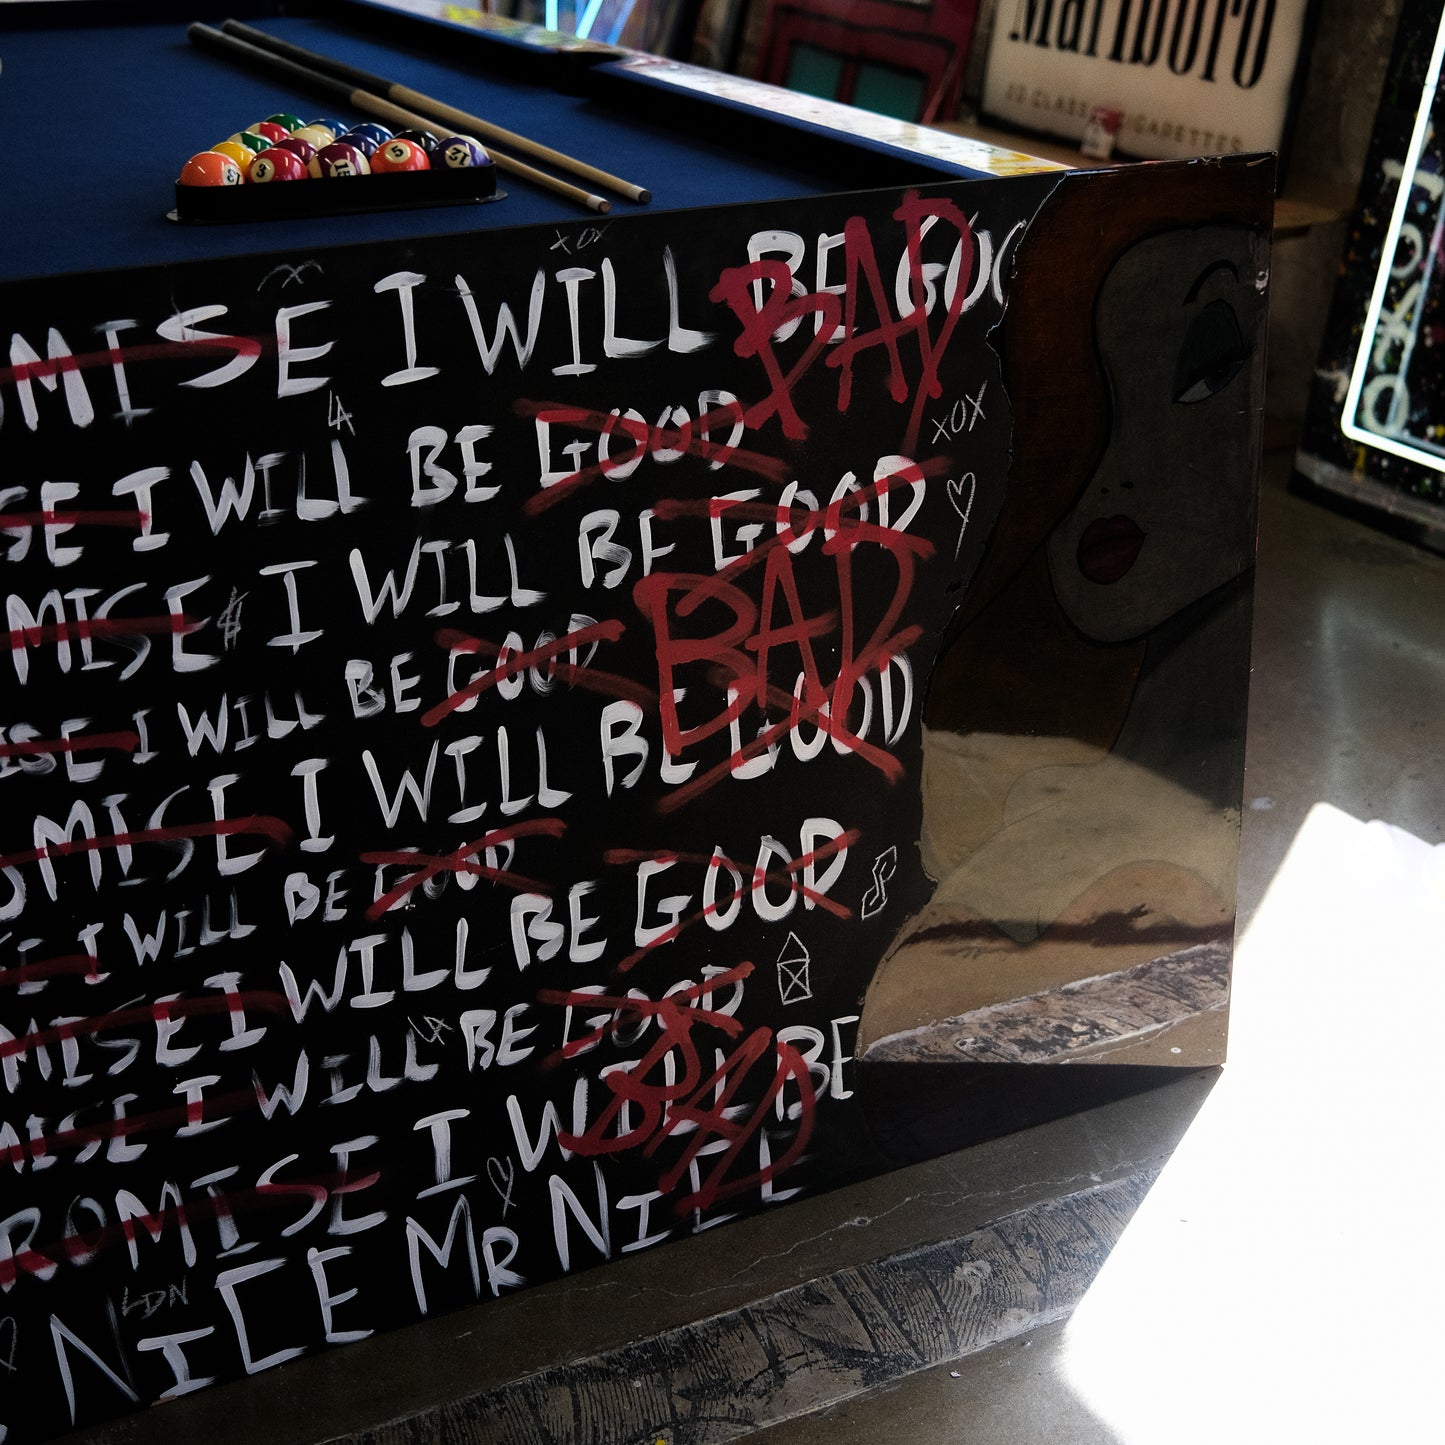 Marlboro
20 CLASS CIGARETTES
13 3 15 5 12
XOX
OMISE I WILL BE GOO
BAD
LA
SE I WILL BE GOOD
XOX
OMISE $ I WILL BE GOOD
BAD
ISE I WILL BE GOOD
OMISE I WILL BE GOOD
SE I WILL BE GOOD
OMISE I WILL BE GOOD
LA
MISE I WILL BE GOOD
BAD
ROMISE I WILL BE
LDN
NICE MR NILL